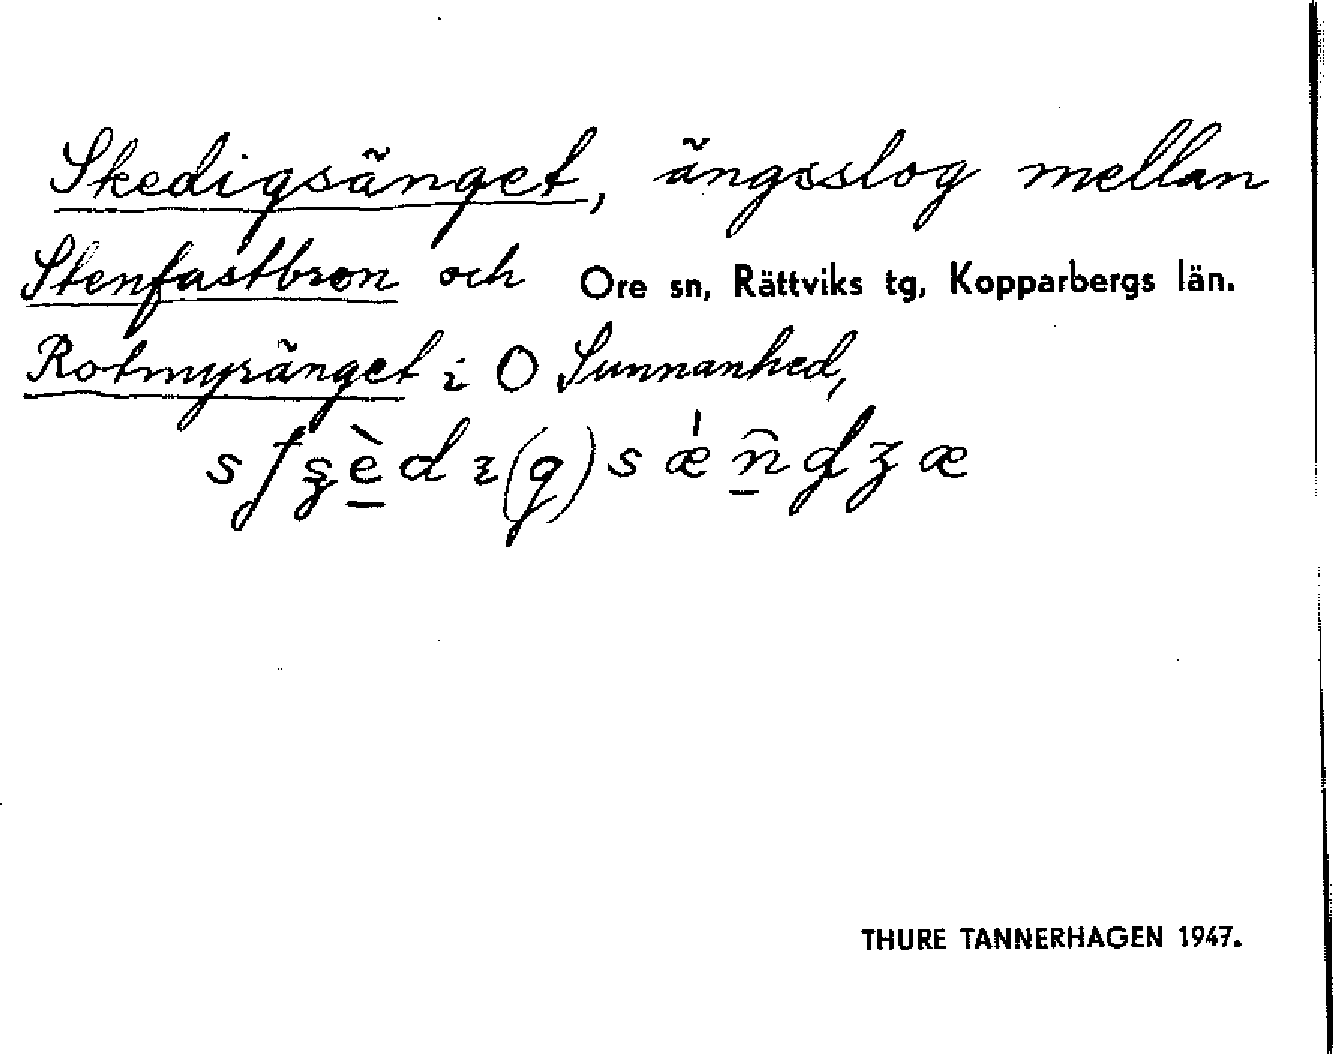 Skedigsänget, ängsslog mellan
Stenfastbron och Ore sn, Rättviks tg, Kopparbergs län.
Rotmyränget i O Sunnanhed,
THURE TANNERHAGEN 1947.